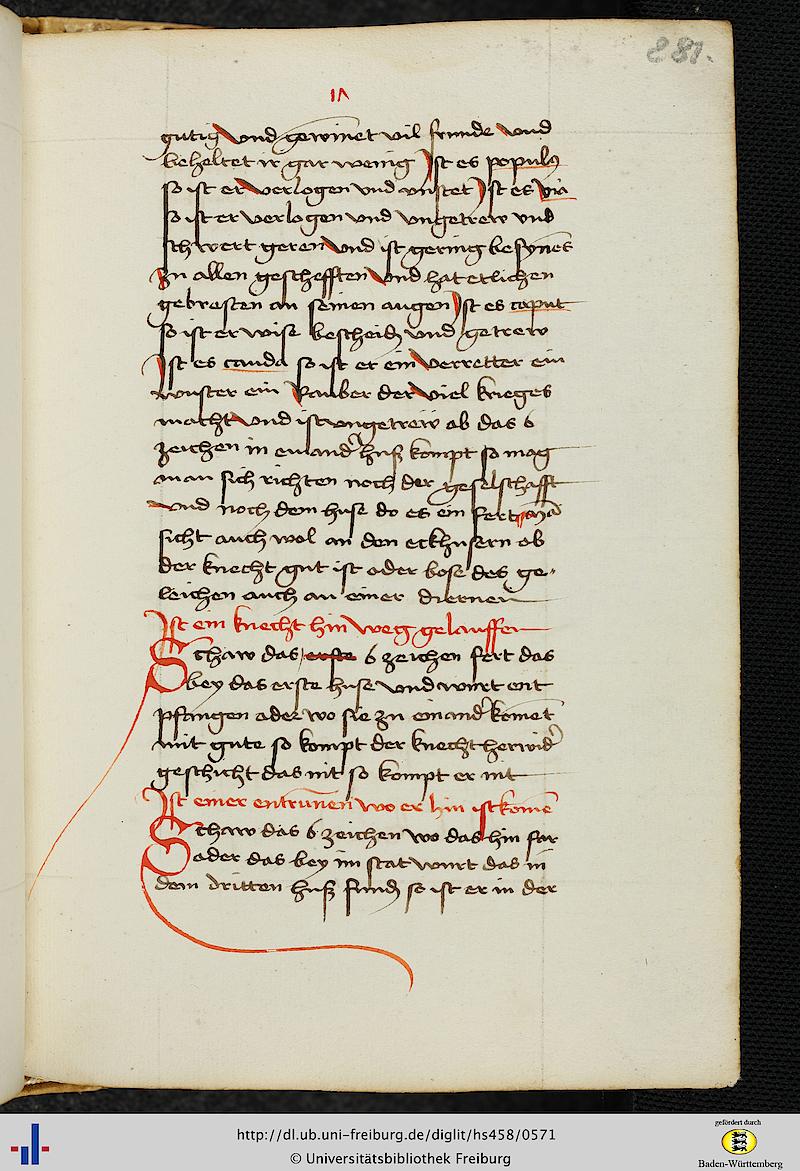 281.
gutig vnd gewinet vil frunde vnd
beheltet ir gar wenig Ist es populus
so ist er verlogen vnd vnstet Ist es via
so ist er verlogen vnd vngetrew vnd
schwert geren vnd ist gering besynes
zu allen geschefften vnd hat etlichen
gebresten an seinen augen Ist es caput
so ist er wise bescheid vnd getrew
Ist es cauda so ist er ein verretter ein
wuster ein Rauber der viel krieges
macht vnd ist vngetrew ob das 6
zeichen in emand huß kompt so mag
man sich richten noch der geselschafft
vnd noch dem huse do es ein fert man
sicht auch wol an den eckhusern ob
der knecht gut ist oder bose des ge-
leichen auch an einer diernen
Ist ein knecht hin weg gelauffen
Schaw das erste 6 zeichen fert das
bey das erste huse vnd wurt ent
pfangen ader wo sie zu einand komet
mit gute so kompt der knecht herwid
geschicht das nit so kompt er nit
Ist einer entrunen wo er hin ist kome
Schaw das 6 zeichen wo das hin far
ader das bey im stat wurt das in
dem dritten huß fund so ist er in der
http://dl.ub.uni-freiburg.de/diglit/hs458/0571
© Universitätsbibliothek Freiburg
gefördert durch
Baden-Württemberg